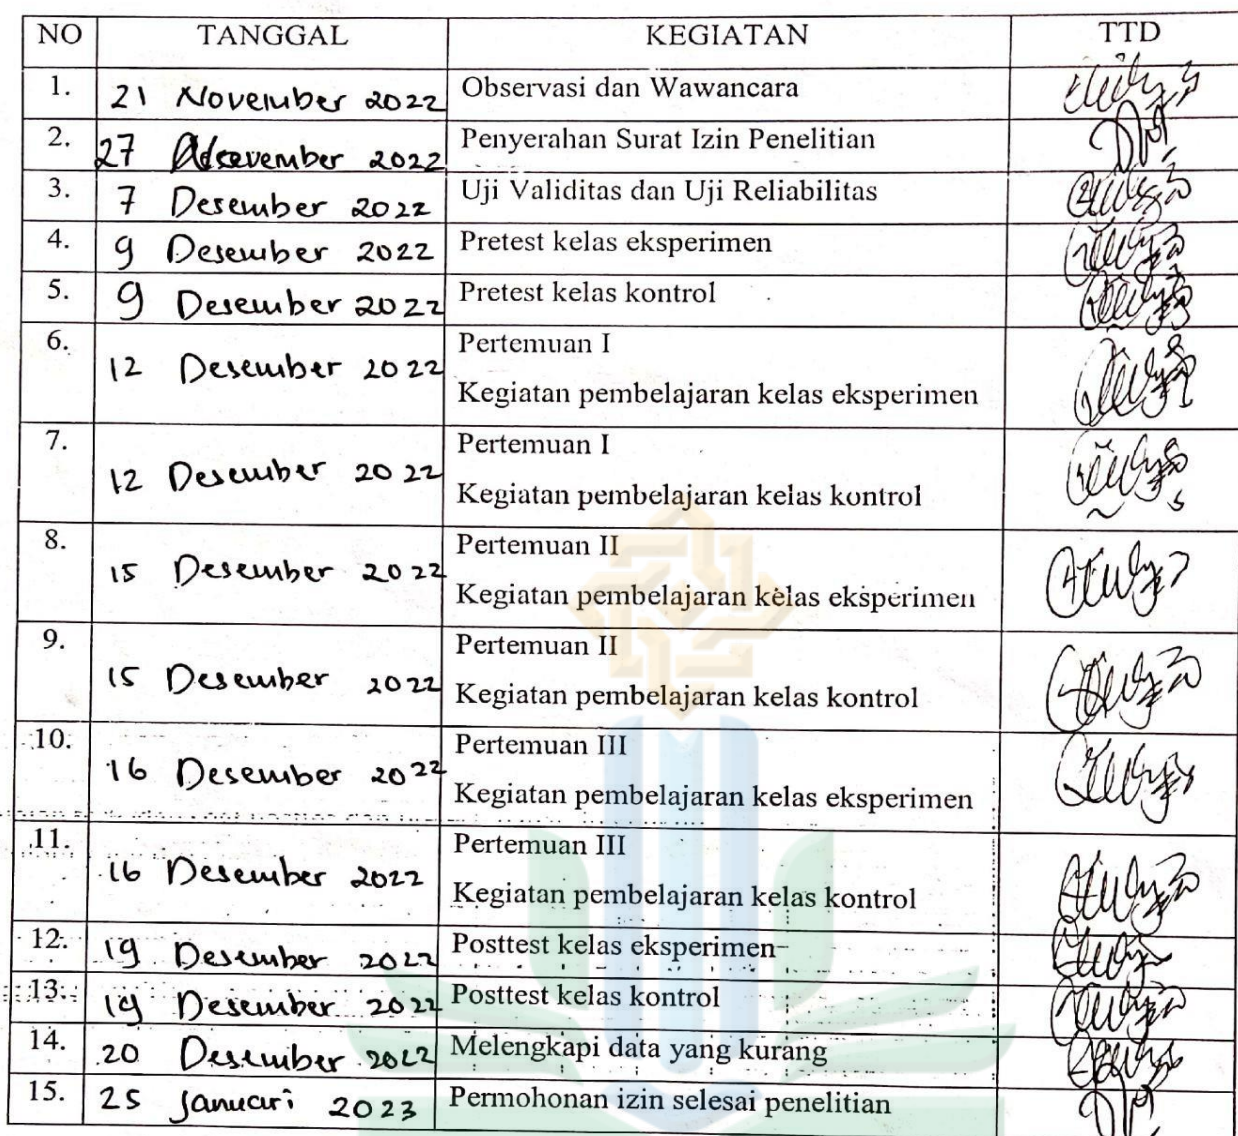 NO TANGGAL KEGIATAN TTD
1. 21 November 2022 Observasi dan Wawancara
2. 27 2022 Penyerahan Surat Izin Penelitian
3. 7 Desember 2022 Uji Validitas dan Uji Reliabilitas
4. 9 Desember 2022 Pretest kelas eksperimen
5. 9 Desember 2022 Pretest kelas kontrol
6. 12 Desember 2022 Pertemuan I
Kegiatan pembelajaran kelas eksperimen
7. 12 Desember 2022 Pertemuan I
Kegiatan pembelajaran kelas kontrol
8. 15 Desember 2022 Pertemuan II
Kegiatan pembelajaran kelas eksperimen
9. 15 Desember 2022 Pertemuan II
Kegiatan pembelajaran kelas kontrol
10. 16 Desember 2022 Pertemuan III
Kegiatan pembelajaran kelas eksperimen
11. 16 Desember 2022 Pertemuan III
Kegiatan pembelajaran kelas kontrol
12. 19 Desember 2022 Posttest kelas eksperimen
13. 19 Desember 2022 Posttest kelas kontrol
14. 20 Desember 2022 Melengkapi data yang kurang
15. 25 Januari 2023 Permohonan izin selesai penelitian